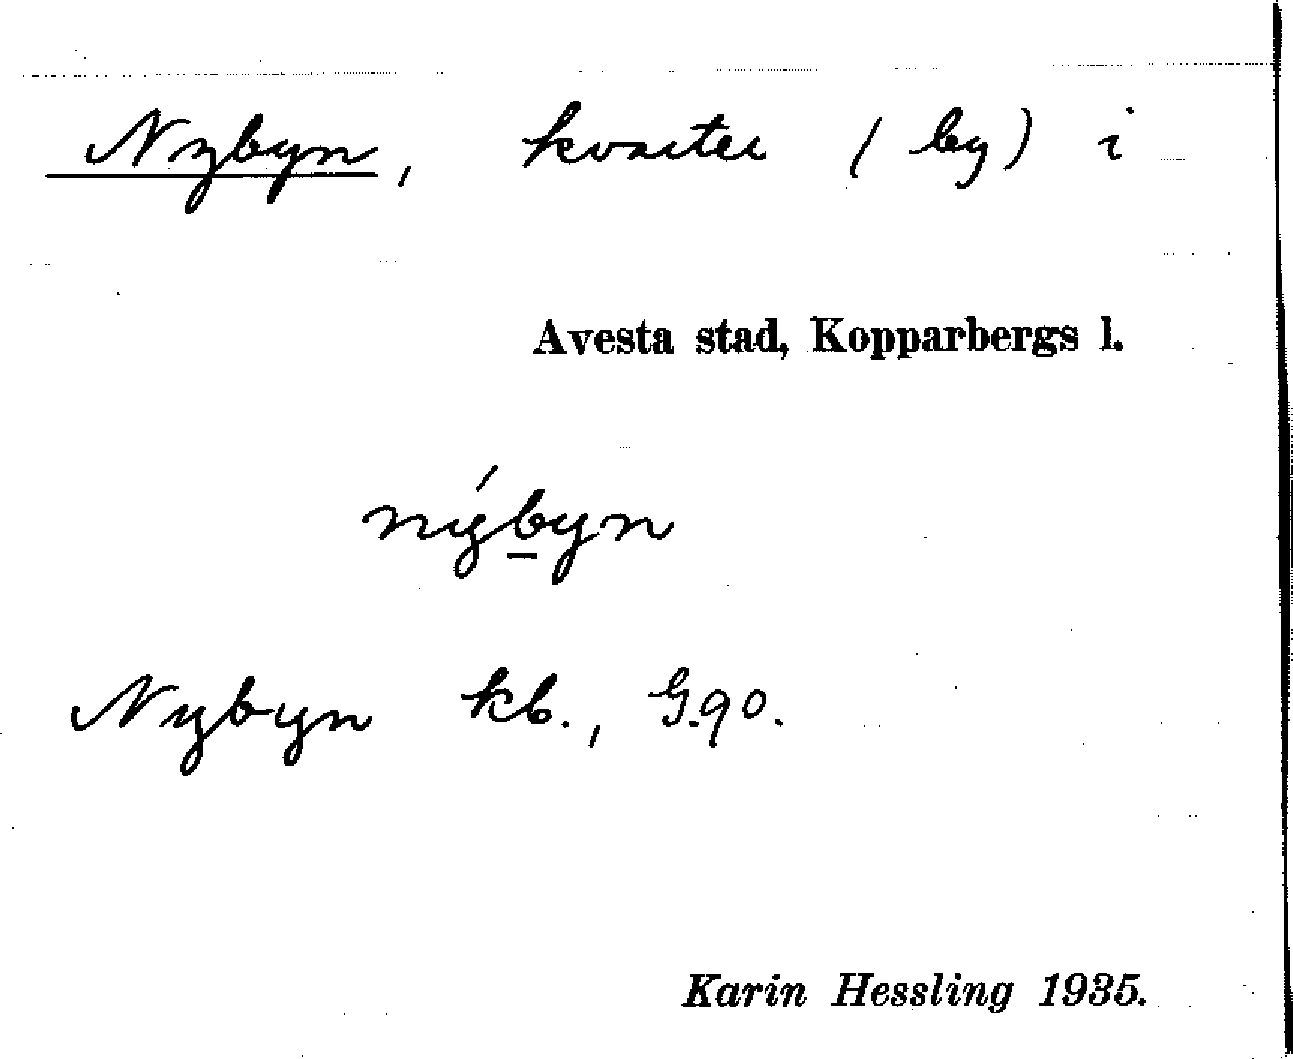 Nybyn, kvarter (by) i
Avesta stad, Kopparbergs l.
nýbyn
Nybyn kb., G.90.
Karin Hessling 1935.